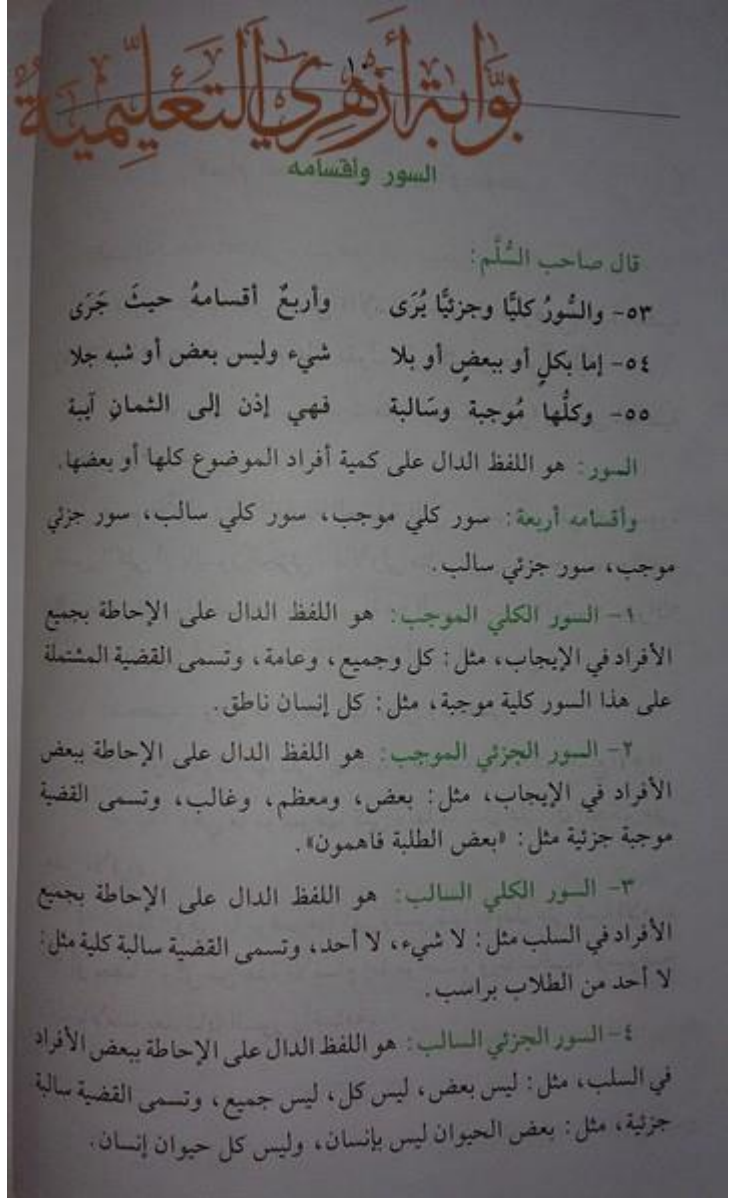 بوابة أزهري التعليمية
- ١٠ -
السور وأقسامه
قال صاحب السُّلَّم:
٥٣- والسُّورُ كليًّا وجزئيًّا يُرَى وأربعٌ أقسامهُ حيثَ جَرَى
٥٤- إما بكلٍ أو ببعضٍ أو بلا شيء وليس بعض أو شبه جلا
٥٥- وكلُّها مُوجبة وسَالبة فهي إذن إلى الثمانِ آيبة
السور: هو اللفظ الدال على كمية أفراد الموضوع كلها أو بعضها.
وأقسامه أربعة: سور كلي موجب، سور كلي سالب، سور جزئي
موجب، سور جزئي سالب.
١- السور الكلي الموجب: هو اللفظ الدال على الإحاطة بجميع
الأفراد في الإيجاب، مثل: كل وجميع، وعامة، وتسمى القضية المشتملة
على هذا السور كلية موجبة، مثل: كل إنسان ناطق.
٢- السور الجزئي الموجب: هو اللفظ الدال على الإحاطة ببعض
الأفراد في الإيجاب، مثل: بعض، ومعظم، وغالب، وتسمى القضية
موجبة جزئية مثل: «بعض الطلبة فاهمون».
٣- السور الكلي السالب: هو اللفظ الدال على الإحاطة بجميع
الأفراد في السلب مثل: لا شيء، لا أحد، وتسمى القضية سالبة كلية مثل:
لا أحد من الطلاب براسب.
٤- السور الجزئي السالب: هو اللفظ الدال على الإحاطة ببعض الأفراد
في السلب، مثل: ليس بعض، ليس كل، ليس جميع، وتسمى القضية سالبة
جزئية، مثل: بعض الحيوان ليس بإنسان، وليس كل حيوان إنسان.